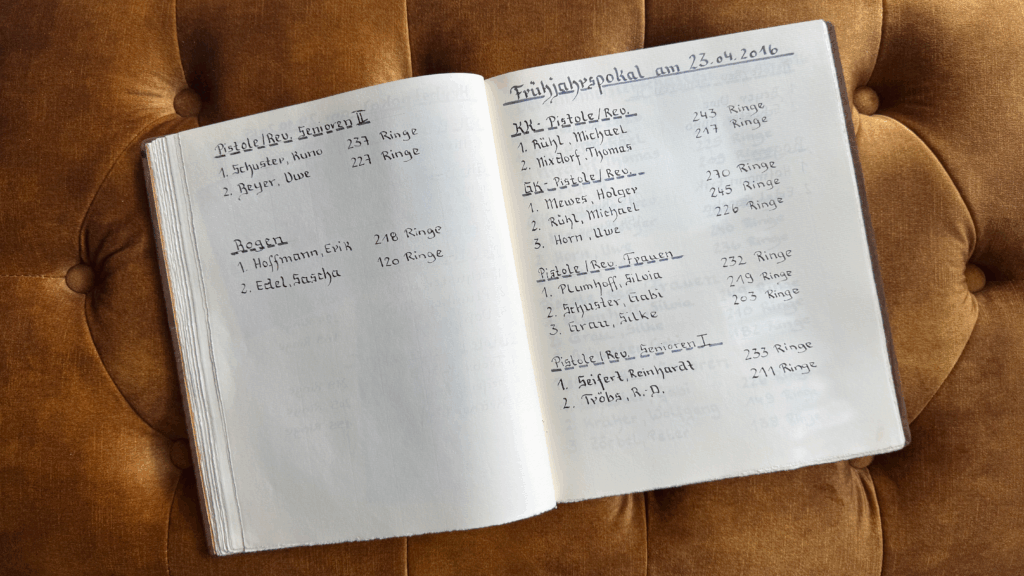 Pistole/Rev. Senioren II
1. Schuster, Kuno 237 Ringe
2. Beyer, Uwe 227 Ringe
Bogen
1. Hoffmann, Erik 218 Ringe
2. Edel, Sascha 120 Ringe
Frühjahrspokal am 23.04.2016
KK-Pistole/Rev.
1. Rühl, Michael 243 Ringe
2. Nixdorf, Thomas 217 Ringe
GK-Pistole/Rev.
1. Mewes, Holger 270 Ringe
2. Rühl, Michael 245 Ringe
3. Horn, Uwe 226 Ringe
Pistole/Rev. Frauen
1. Plumhoff, Silvia 232 Ringe
2. Schuster, Gabi 219 Ringe
3. Grau, Silke 203 Ringe
Pistole/Rev. Senioren I
1. Seifert, Reinhardt 233 Ringe
2. Tröbs, R. D. 211 Ringe